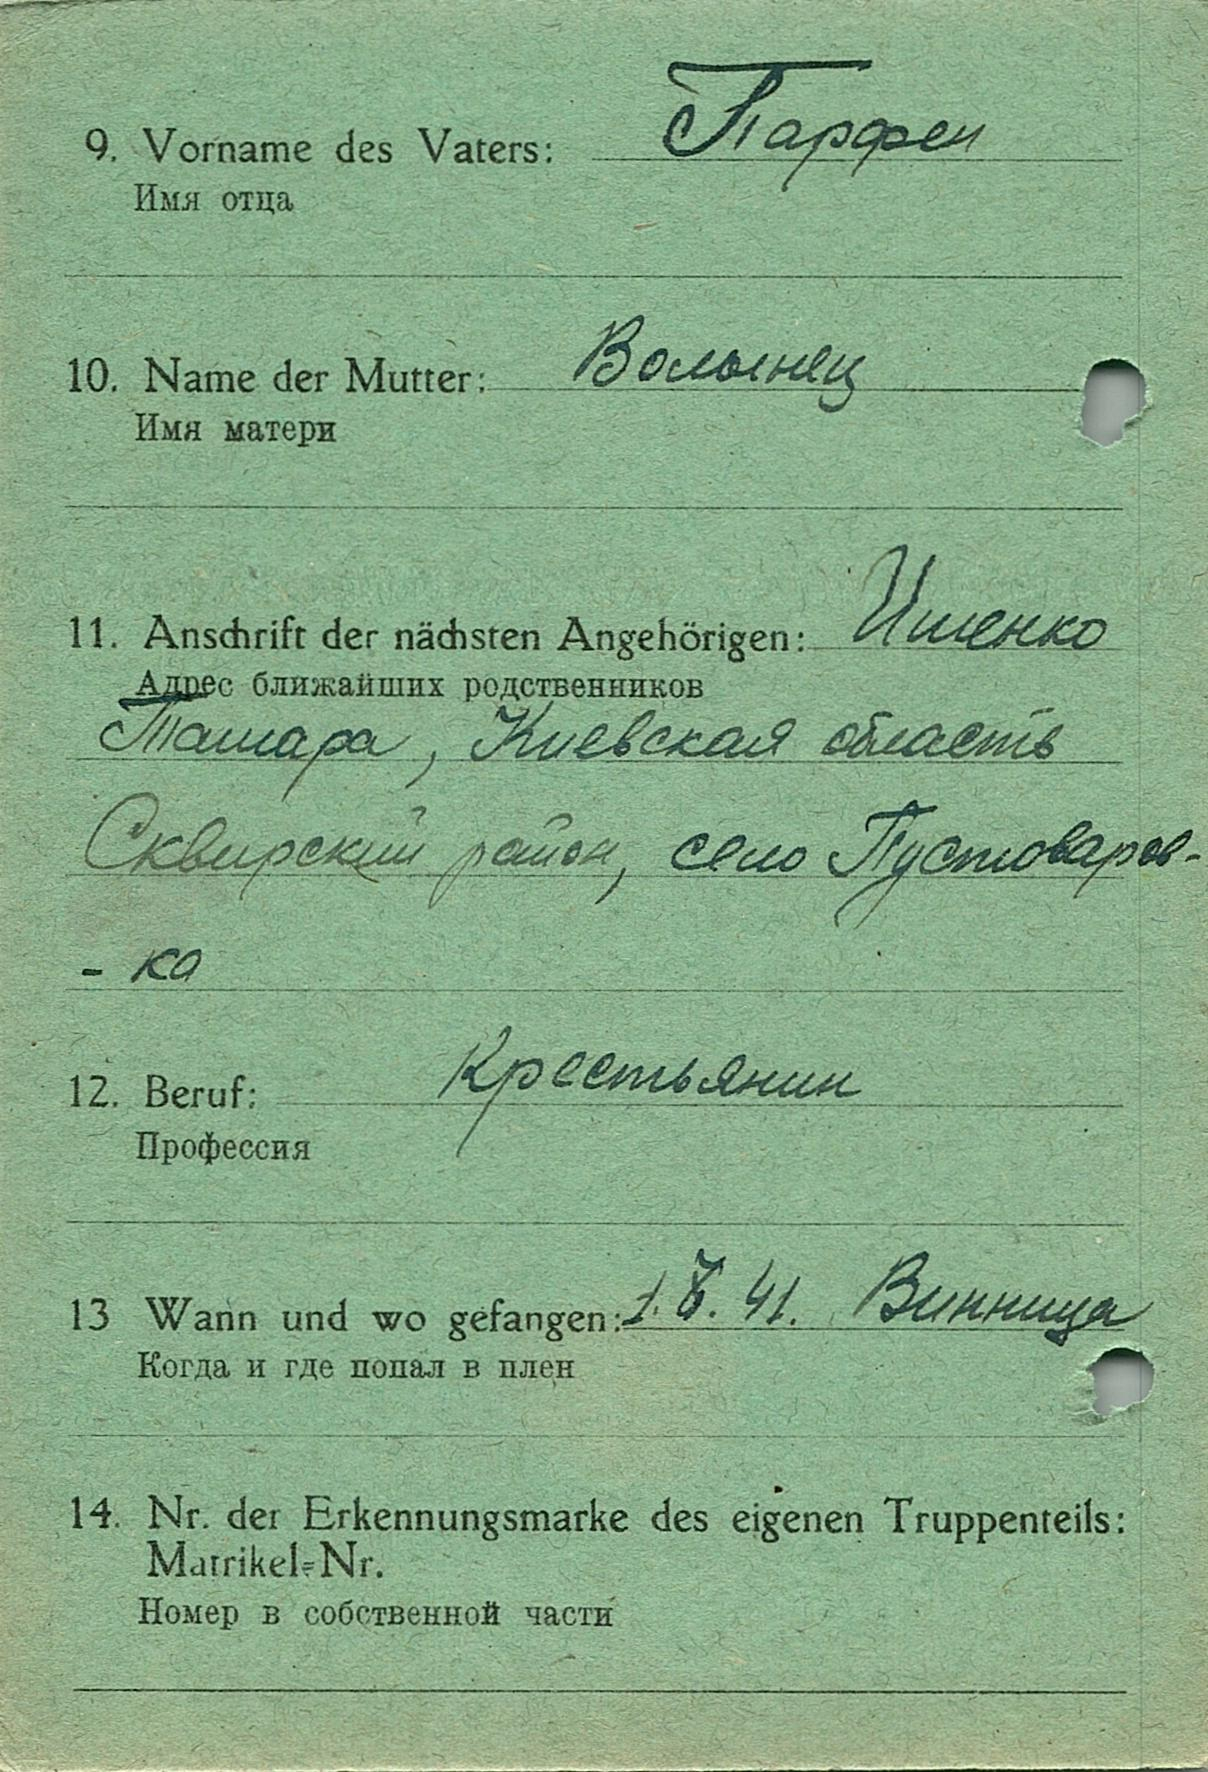 9. Vorname des Vaters: Парфен
Имя отца
10. Name der Mutter: Волынец
Имя матери
11. Anschrift der nächsten Angehörigen: Ищенко
Адрес ближайших родственников
Тамара, Киевская область
Сквирский район, село Пустоваров-
- ка
12. Beruf: Крестьянин
Профессия
13 Wann und wo gefangen: 1. 8. 41. Винница
Когда и где попал в плен
14. Nr. der Erkennungsmarke des eigenen Truppenteils:
Matrikel-Nr.
Номер в собственной части